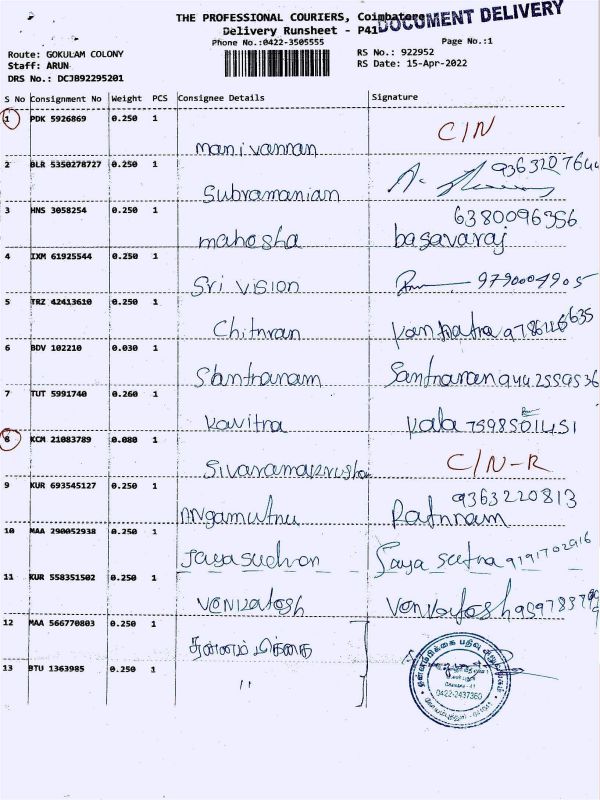 THE PROFESSIONAL COURIERS, Coimbatore
DOCUMENT DELIVERY
Delivery Runsheet - P41
Phone No.:0422-3505555
Page No.:1
Route: GOKULAM COLONY
RS No.: 922952
Staff: ARUN
RS Date: 15-Apr-2022
DRS No.: DCJB92295201
S No Consignment No Weight PCS Consignee Details Signature
1 PDK 5926869 0.250 1
manivannan C/N
2 BLR 5350278727 0.250 1 9363207644
Subramanian
3 HNS 3058254 0.250 1 6380096356
mahesha basavaraj
4 IXM 61925544 0.250 1
Sri vision 9790004905
5 TRZ 42413610 0.250 1
Chitnran
6 BDV 102210 0.030 1
Santnanam Santnanan 9442559536
7 TUT 5991740 0.260 1
Kavitna Kala 7598501451
8 KCM 21083789 0.080 1
C/N-R
9 KUR 693545127 0.250 1 9363220813
Ratnnam
10 MAA 290052938 0.250 1
Jayasudhan 9191702916
11 KUR 558351502 0.250 1
Venkatesh Venkatesh
12 MAA 566770803 0.250 1
13 BTU 1363985 0.250 1
"
0422-2437360